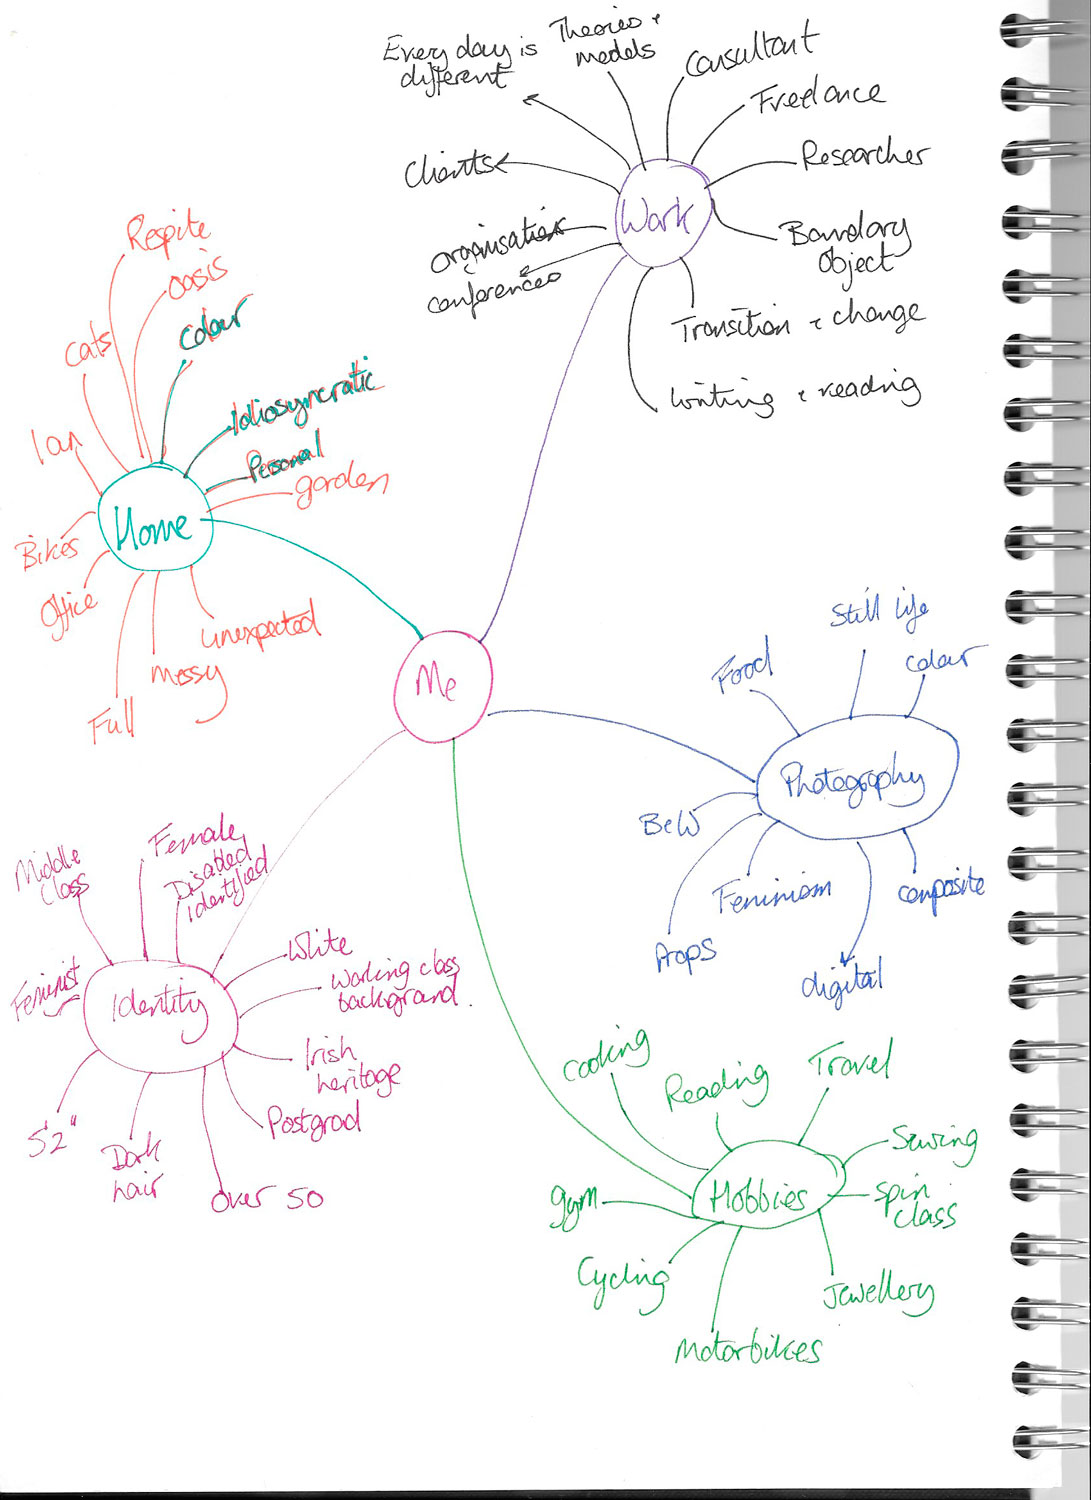 Every day is
different
Theories +
models
Consultant
Freelance
Researcher
Clients
Work
Boundary
Object
organisation
conferences
Transition + change
Writing + reading
Respite
oasis
colour
cats
Idiosyncratic
Ian
Personal
garden
Home
Bikes
Office
unexpected
messy
Full
Me
Still life
Food
colour
Photography
B&W
Feminism
composite
Props
digital
Middle
Class
Female
Disabled
identified
White
Working class
background.
Feminist
Identity
Irish
heritage
Postgrad
5'2"
Dark
hair
over 50
cooking
Reading
Travel
Sewing
Hobbies
spin
class
gym
Cycling
Jewellery
Motorbikes